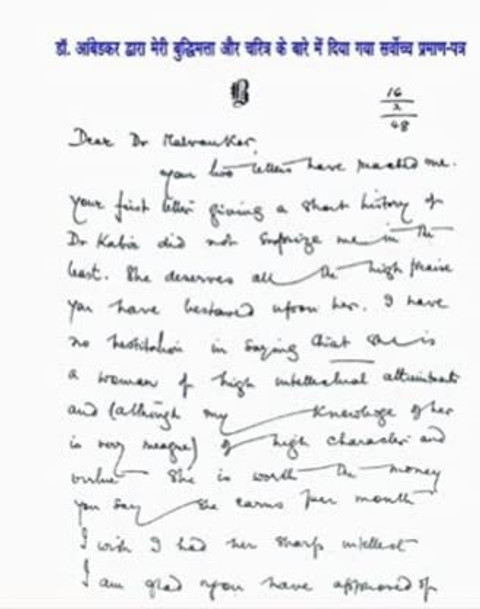 डॉ. आंबेडकर द्वारा मेरी बुद्धिमत्ता और चरित्र के बारे में दिया गया सर्वोच्च प्रमाण-पत्र
B
16
2
48
Dear Dr Malvankar,
your two letters have reached me.
your first letter giving a short history of
Dr Kabir did not surprize me in the
least. She deserves all the high praise
you have bestowed upon her. I have
no hesitation in saying that she is
a woman of high intellectual attainments
and (although my knowledge of her
is very meagre) of high character and
virtue. She is worth the money
you say she earns per month
I wish I had her sharp intellect
I am glad you have approved of